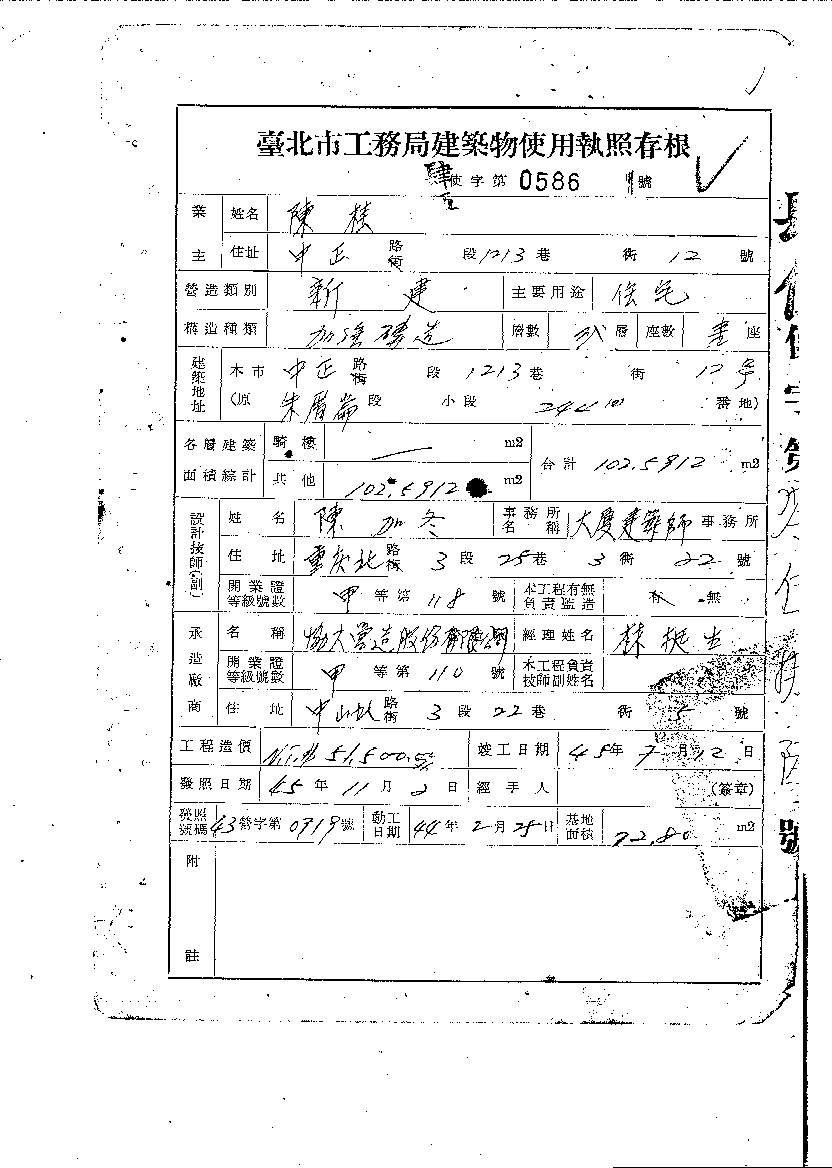 臺北市工務局建築物使用執照存根
肆五使字第 0586 號
業主 姓名 陳桂
住址 中正路街 段1213巷 街12號
營造類別 新建 主要用途 住宅
構造種類 加強磚造 層數 弍層 座數 壹座
建築地址 本市 中正路街 段1213巷 街12号
(原 朱厝崙段 小段 244 番地)
各層建築面積綜計 騎樓 — m2 合計 102.5912 m2
其他 102.5912 m2
設計技師(副) 姓名 陳加冬 事務所名稱 大廈建築師事務所
住址 重慶北路街 3段25巷3街22號
開業證等級號數 甲等第118號 本工程有無負責監造 有 無
承造廠商 名稱 協大營造股份有限公司 經理姓名 林挺生
開業證等級號數 甲等第110號 本工程負責技師副姓名
住址 中山北路街 3段22巷 街5號
工程造價 N.T.$51,500.00 竣工日期 45年9月12日
發照日期 45年11月2日 經手人 (簽章)
發照號碼 43營字第0919號 動工日期 44年2月25日 基地面積 72.80 m2
附註
號